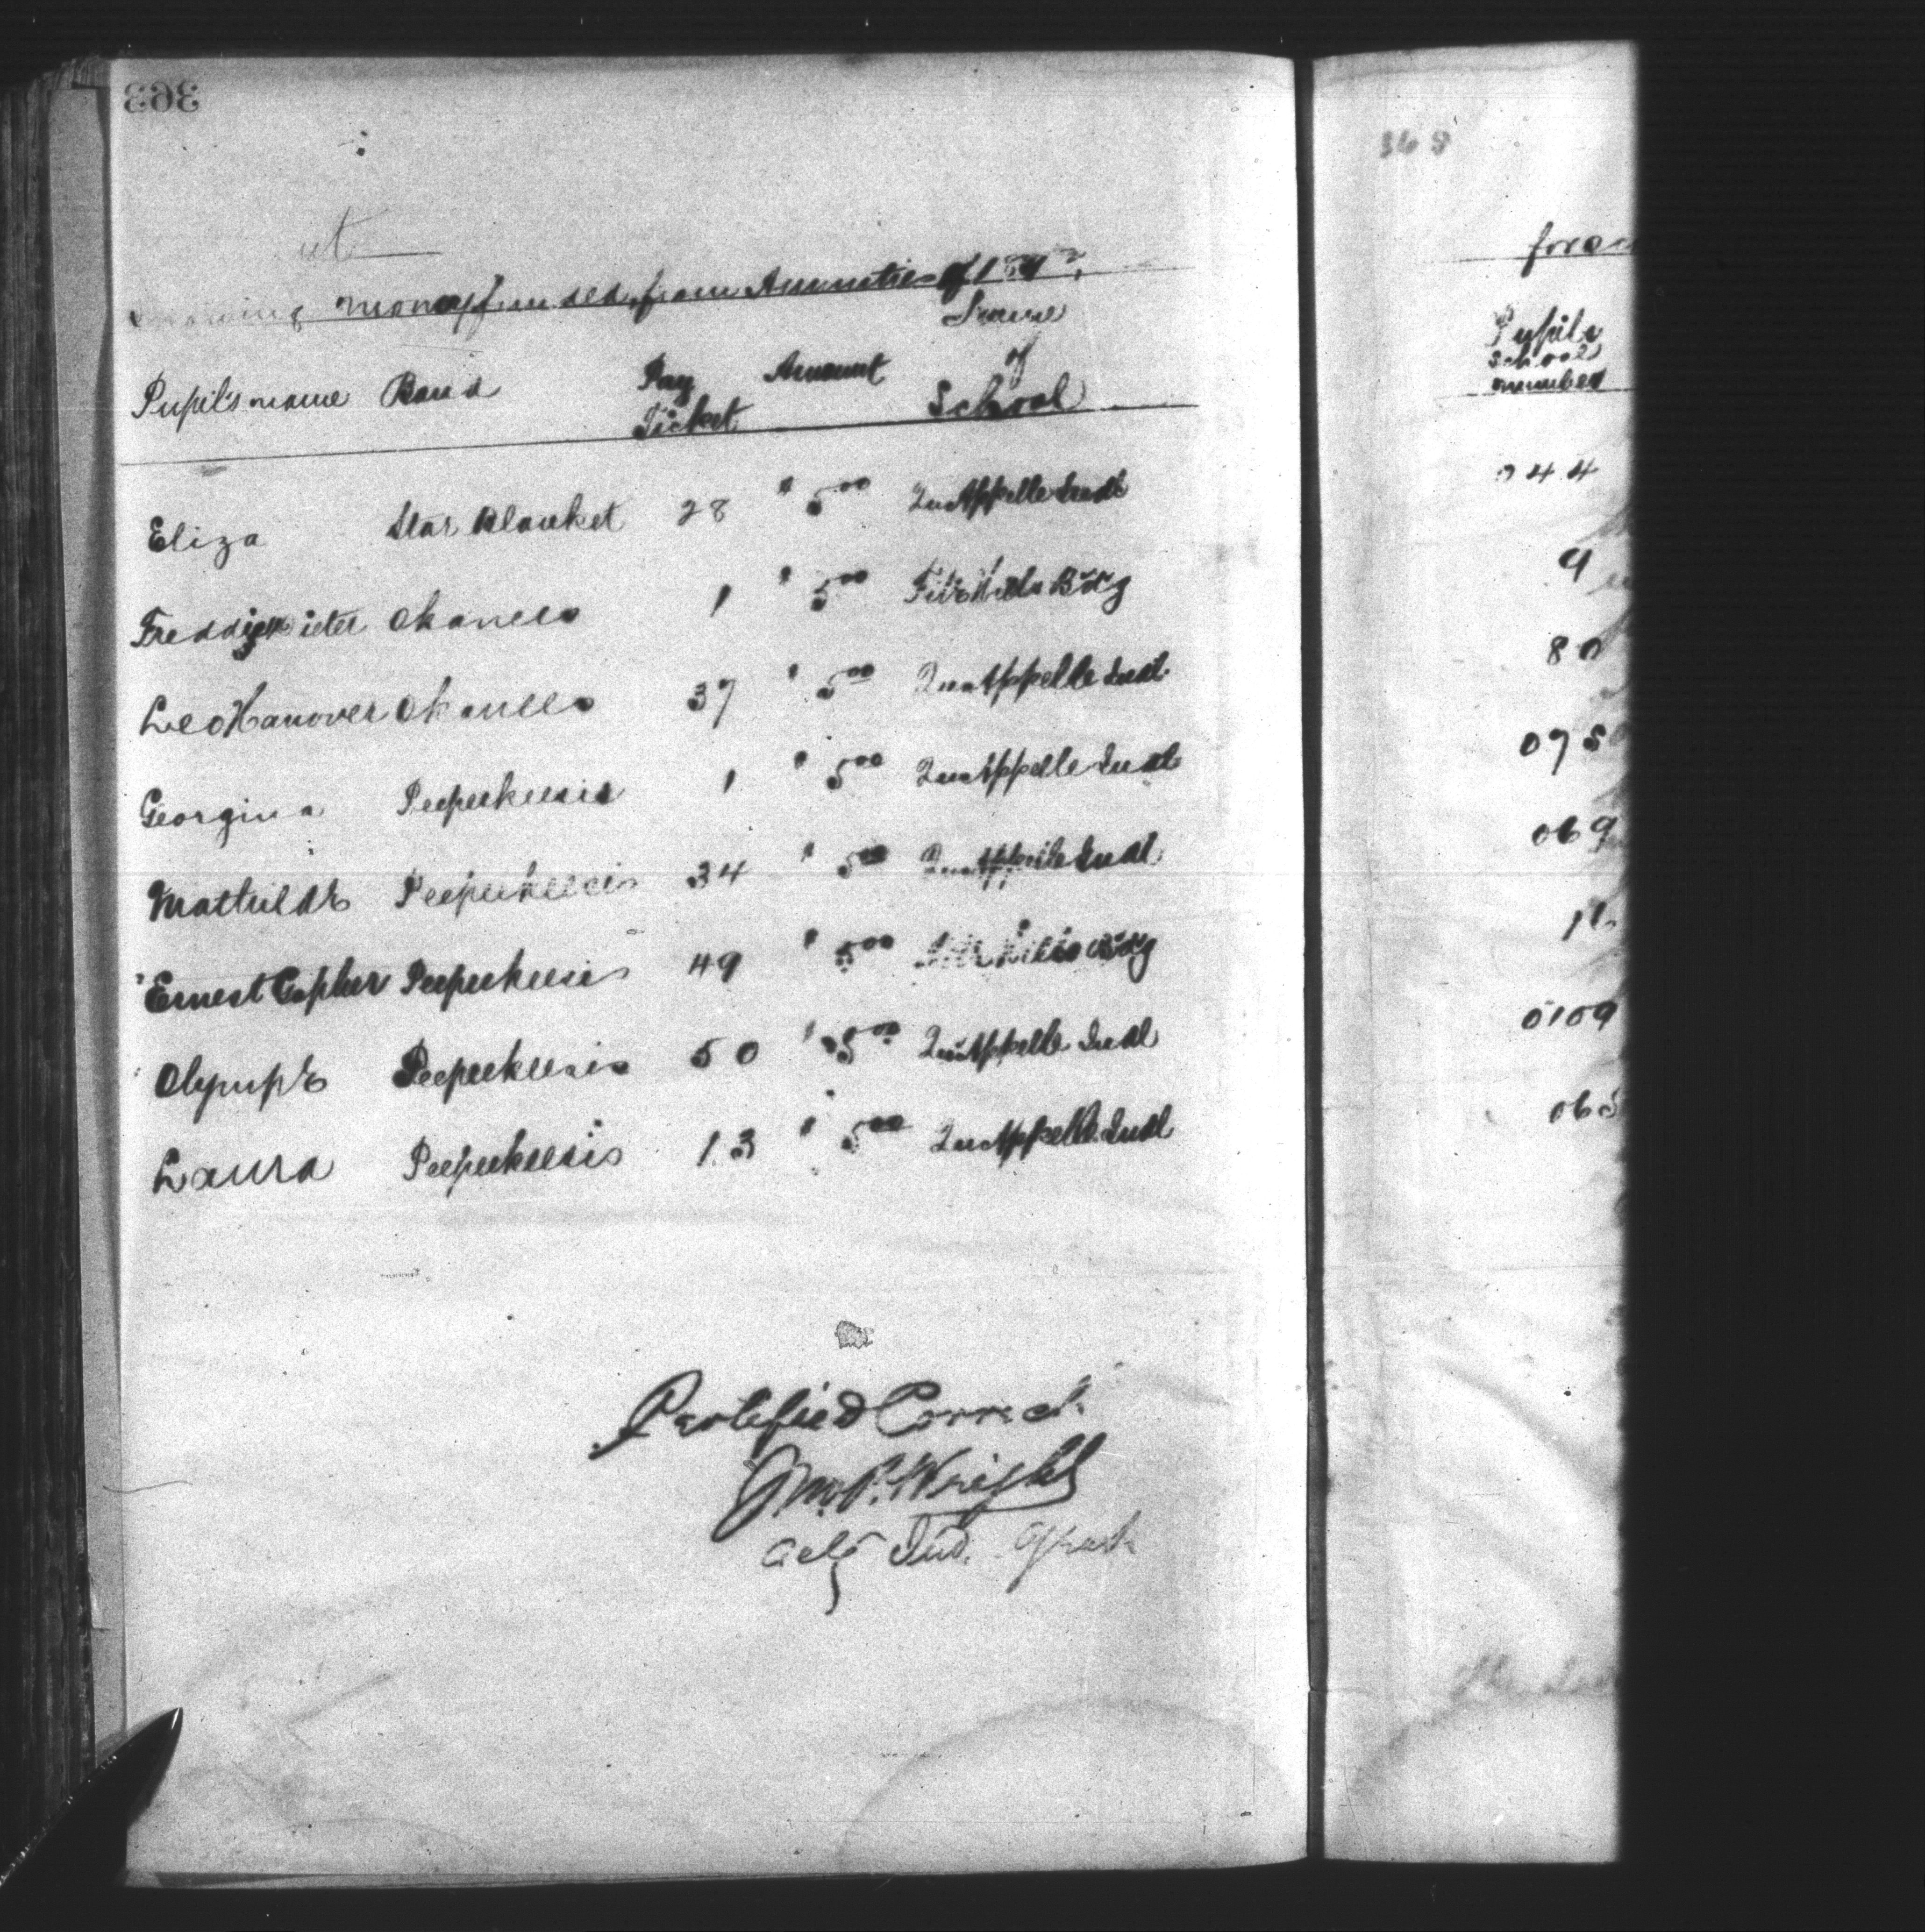 363
368
money funded from Annuities of 189
Pupils name Band Pay Ticket Amount Name of School
Eliza Star Blanket 28 " 5 00 Qu'Appelle Indl
Freddy Okanees 1 " 5 00 File Hills B'd'g
Leo Hanover Okanees 37 " 5 00 Qu'Appelle Indl
Georgina Peepeekeesis 1 " 5 00 Qu'Appelle Indl
Mathilde Peepeekeesis 34 " 5 00 Qu'Appelle Indl
Ernest Gopher Peepeekeesis 49 " 5 00 File Hills B'd'g
Olympe Peepeekeesis 50 " 5 00 Qu'Appelle Indl
Laura Peepeekeesis 13 " 5 00 Qu'Appelle Indl
Certified Correct
Jno. P. Wright
Actg Ind. Agent
Pupils
school
number
044
9
80
075
069
11
0109
065